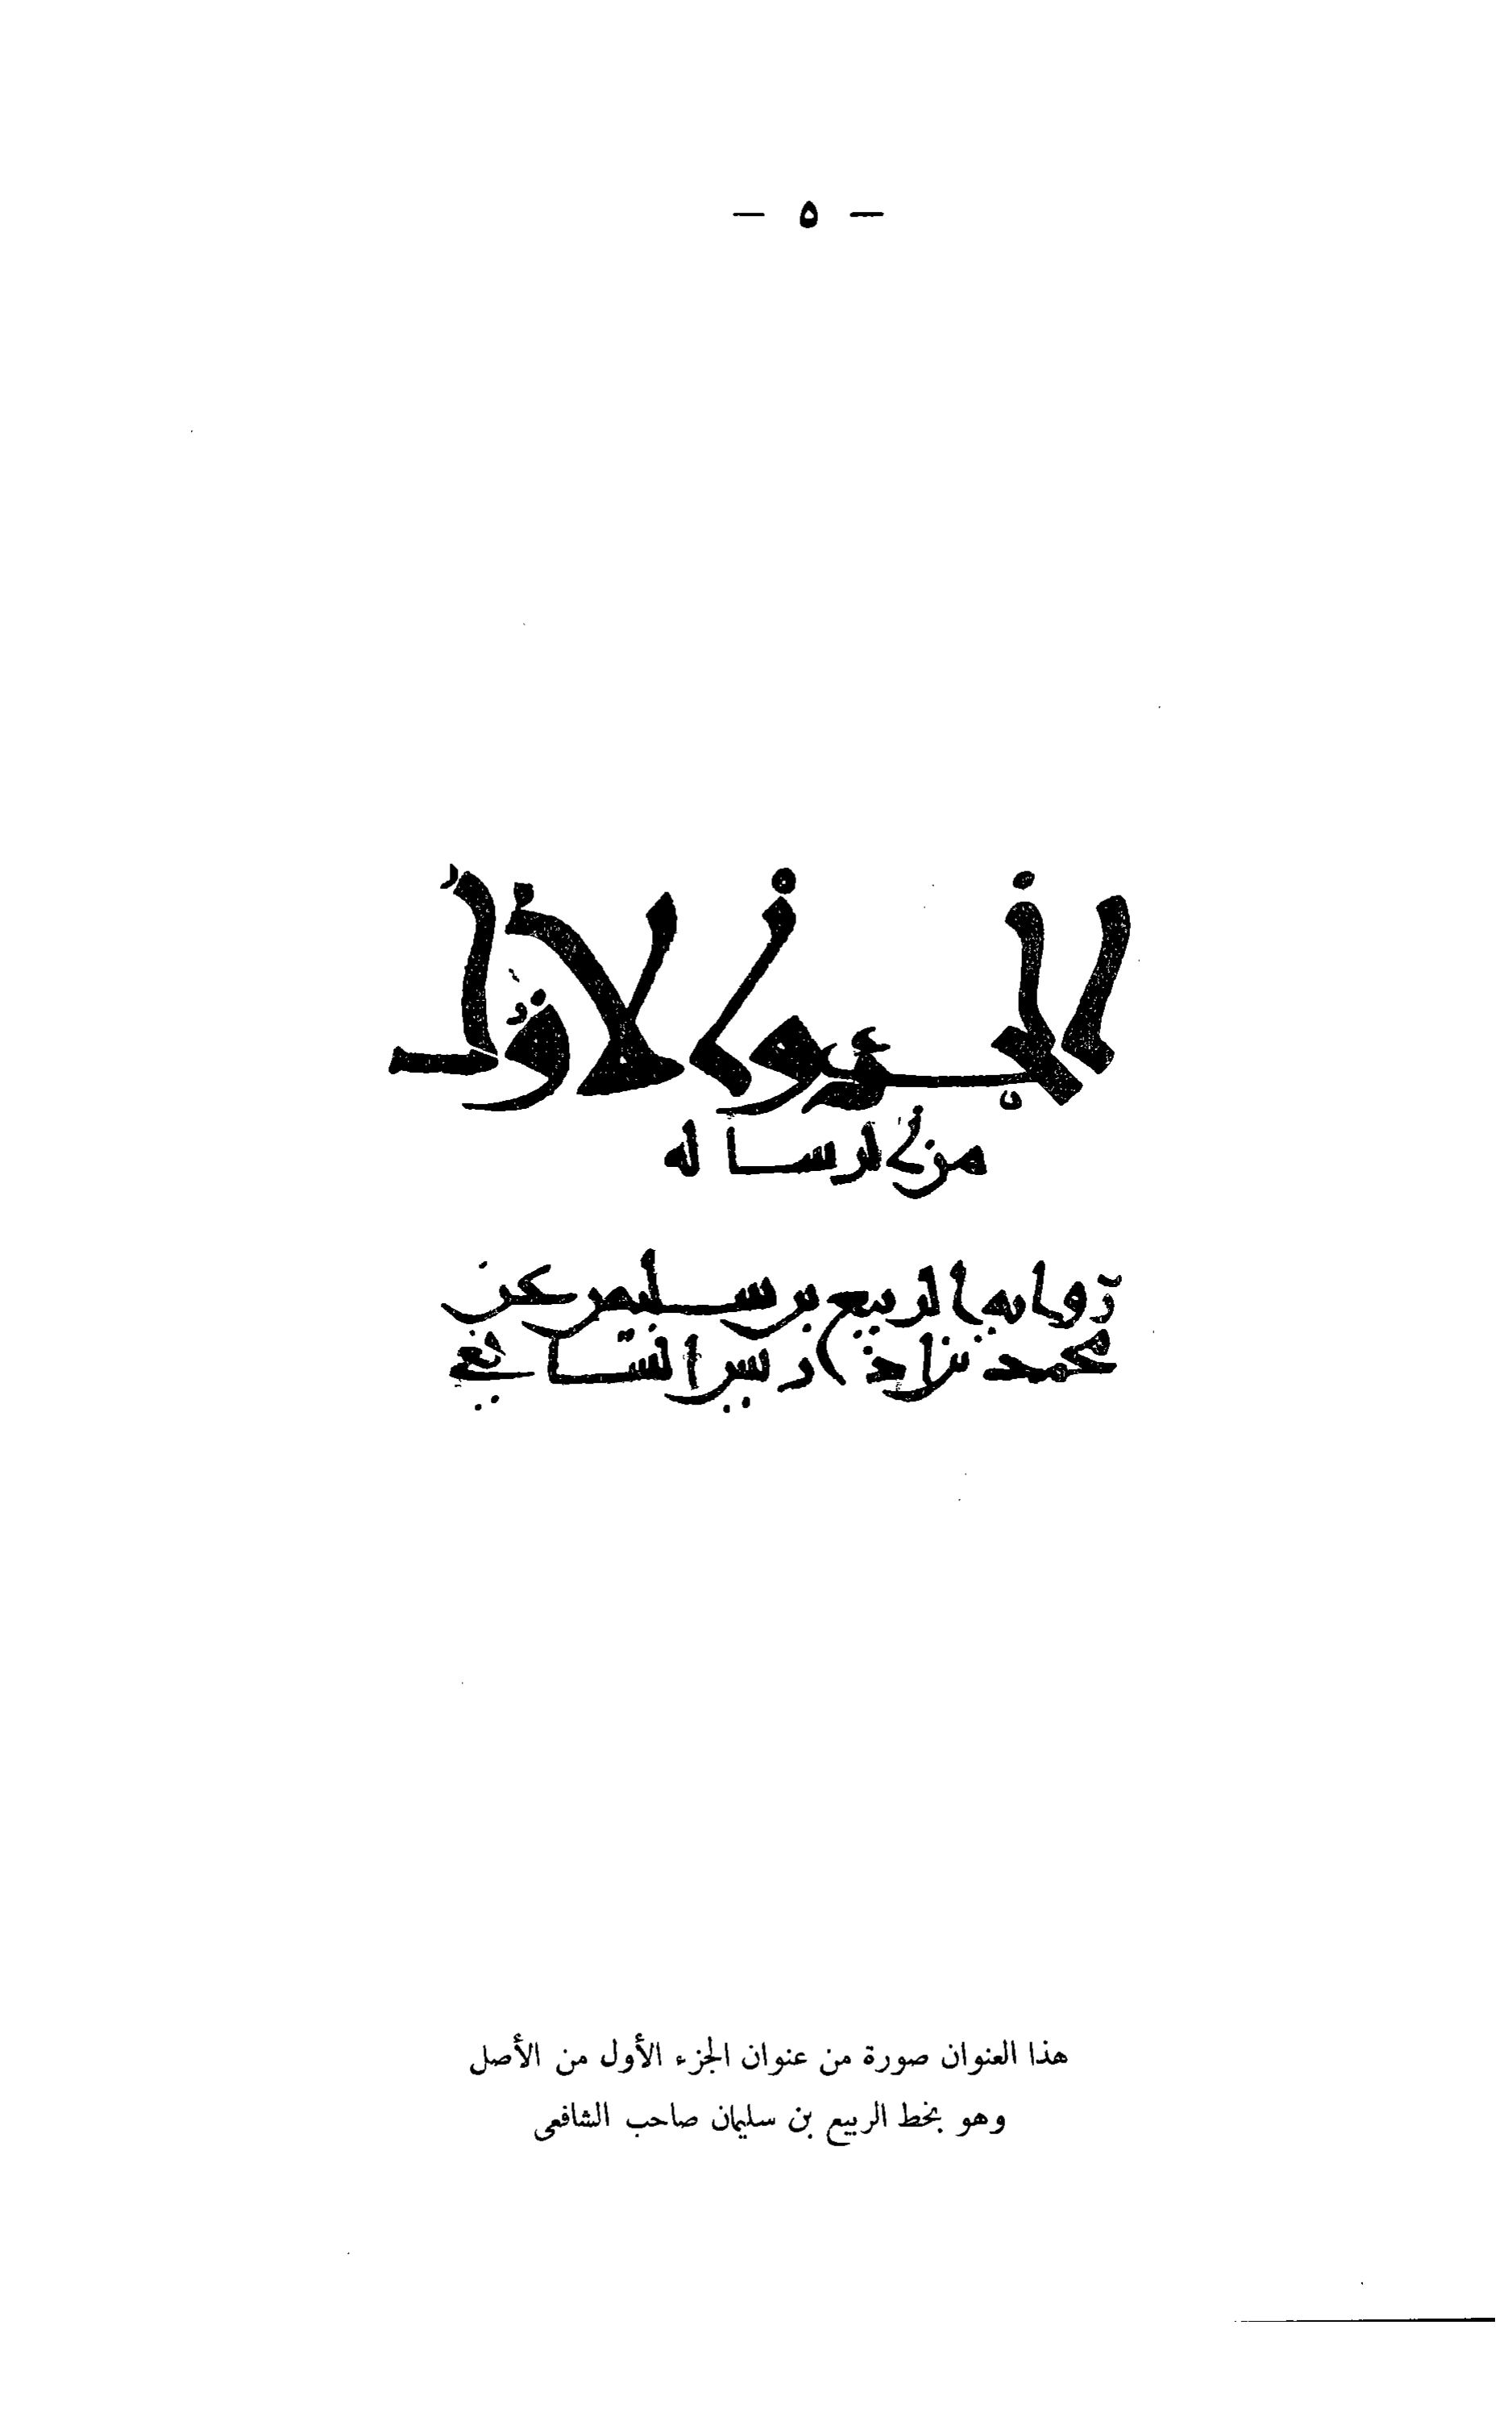 — ٥ —
الجزو الاول
من الرساله
روايه الربيع بن سليمن عن
محمد بن ادريس الشافعي
هذا العنوان صورة من عنوان الجزء الأول من الأصل
وهو بخط الربيع بن سليمان صاحب الشافعى